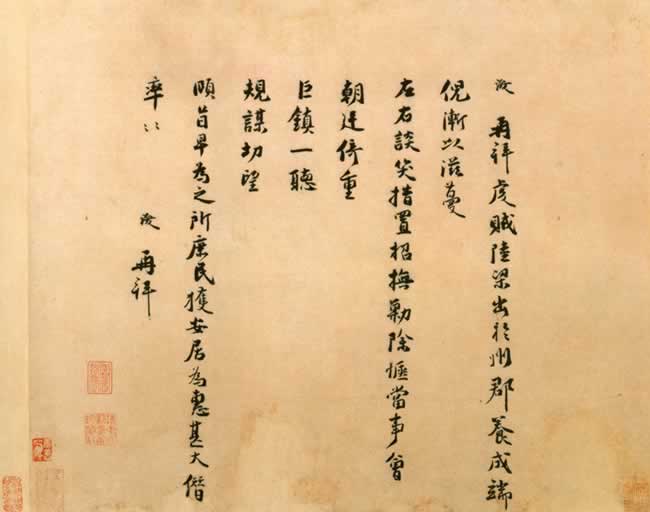 浚 再拜虔賊陸梁出於州郡養成端
倪漸以滋蔓
左右談笑措置招撫勦除愜當事會
朝廷倚重
巨鎮一聽
規謀切望
頤旨早為之所庶民獲安居為惠甚大僭
率〻
浚 再拜